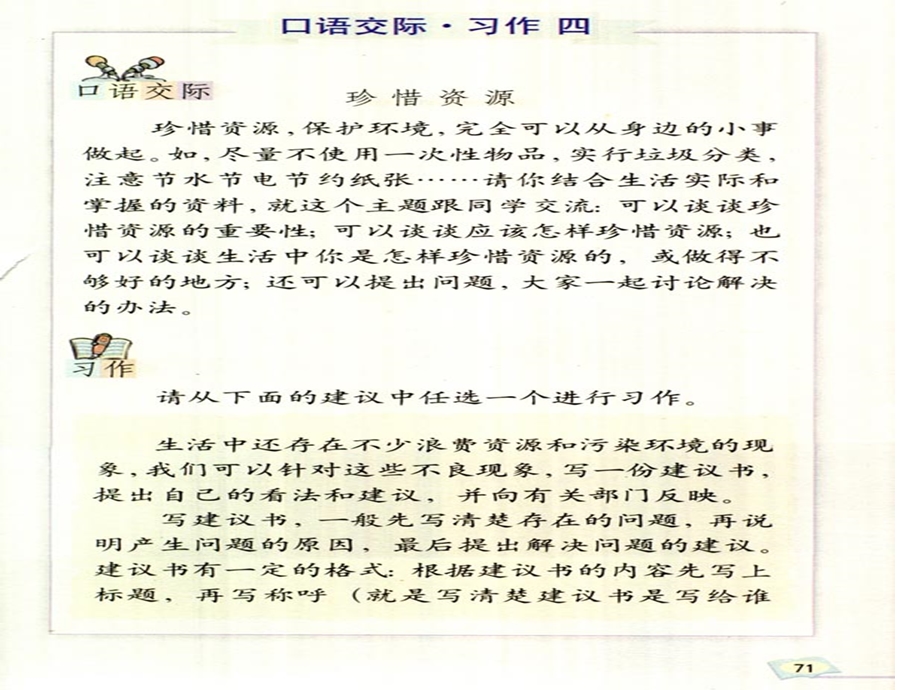 口语交际·习作 四
口语交际
珍惜资源
珍惜资源,保护环境,完全可以从身边的小事
做起。如,尽量不使用一次性物品,实行垃圾分类,
注意节水节电节约纸张……请你结合生活实际和
掌握的资料,就这个主题跟同学交流:可以谈谈珍
惜资源的重要性;可以谈谈应该怎样珍惜资源;也
可以谈谈生活中你是怎样珍惜资源的,或做得不
够好的地方;还可以提出问题,大家一起讨论解决
的办法。
习作
请从下面的建议中任选一个进行习作。
生活中还存在不少浪费资源和污染环境的现
象,我们可以针对这些不良现象,写一份建议书,
提出自己的看法和建议,并向有关部门反映。
写建议书,一般先写清楚存在的问题,再说
明产生问题的原因,最后提出解决问题的建议。
建议书有一定的格式:根据建议书的内容先写上
标题,再写称呼(就是写清楚建议书是写给谁
71